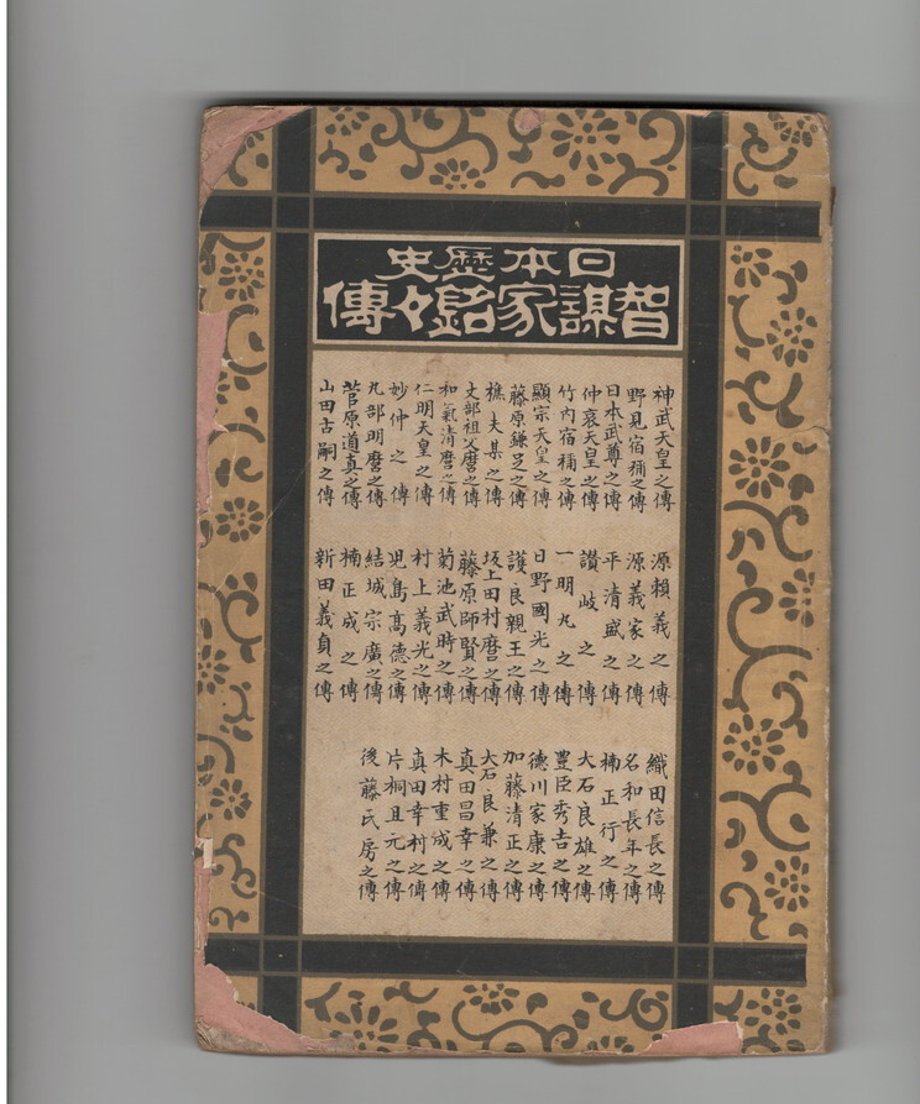 日本歴史
智謀家銘々傳
神武天皇之傳
野見宿祢之傳
日本武尊之傳
仲哀天皇之傳
竹内宿祢之傳
顯宗天皇之傳
藤原鎌足之傳
樵夫某之傳
丈部祖父麿之傳
和氣清麿之傳
仁明天皇之傳
妙仲之傳
丸部明麿之傳
菅原道真之傳
山田古嗣之傳
源賴義之傳
源義家之傳
平清盛之傳
讃岐之傳
一明丸之傳
日野國光之傳
護良親王之傳
坂上田村麿之傳
藤原師賢之傳
菊池武時之傳
村上義光之傳
児島高德之傳
結城宗廣之傳
楠正成之傳
新田義貞之傳
織田信長之傳
名和長年之傳
楠正行之傳
大石良雄之傳
豐臣秀吉之傳
德川家康之傳
加藤清正之傳
大石良兼之傳
真田昌幸之傳
木村重成之傳
真田幸村之傳
片桐且元之傳
後藤氏房之傳